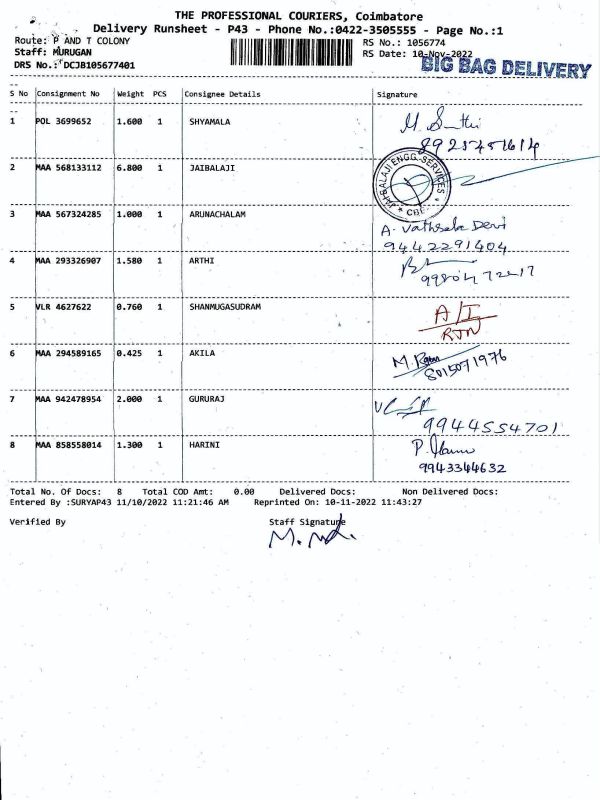 THE PROFESSIONAL COURIERS, Coimbatore
Delivery Runsheet - P43 - Phone No.:0422-3505555 - Page No.:1
Route: P AND T COLONY RS No.: 1056774
Staff: MURUGAN RS Date: 10-Nov-2022
DRS No.: DCJB105677401 BIG BAG DELIVERY
S No Consignment No Weight PCS Consignee Details Signature
1 POL 3699652 1.600 1 SHYAMALA
2 MAA 568133112 6.800 1 JAIBALAJI
JAIBALAJI ENGG. SERVICES * CBE- *
3 MAA 567324285 1.000 1 ARUNACHALAM
A. Vathsala Devi
9442291404
4 MAA 293326907 1.580 1 ARTHI
5 VLR 4627622 0.760 1 SHANMUGASUDRAM
A/I
RTN
6 MAA 294589165 0.425 1 AKILA
8015071976
7 MAA 942478954 2.000 1 GURURAJ
9944554701
8 MAA 858558014 1.300 1 HARINI
9943344632
Total No. Of Docs: 8 Total COD Amt: 0.00 Delivered Docs: Non Delivered Docs:
Entered By :SURYAP43 11/10/2022 11:21:46 AM Reprinted On: 10-11-2022 11:43:27
Verified By Staff Signature